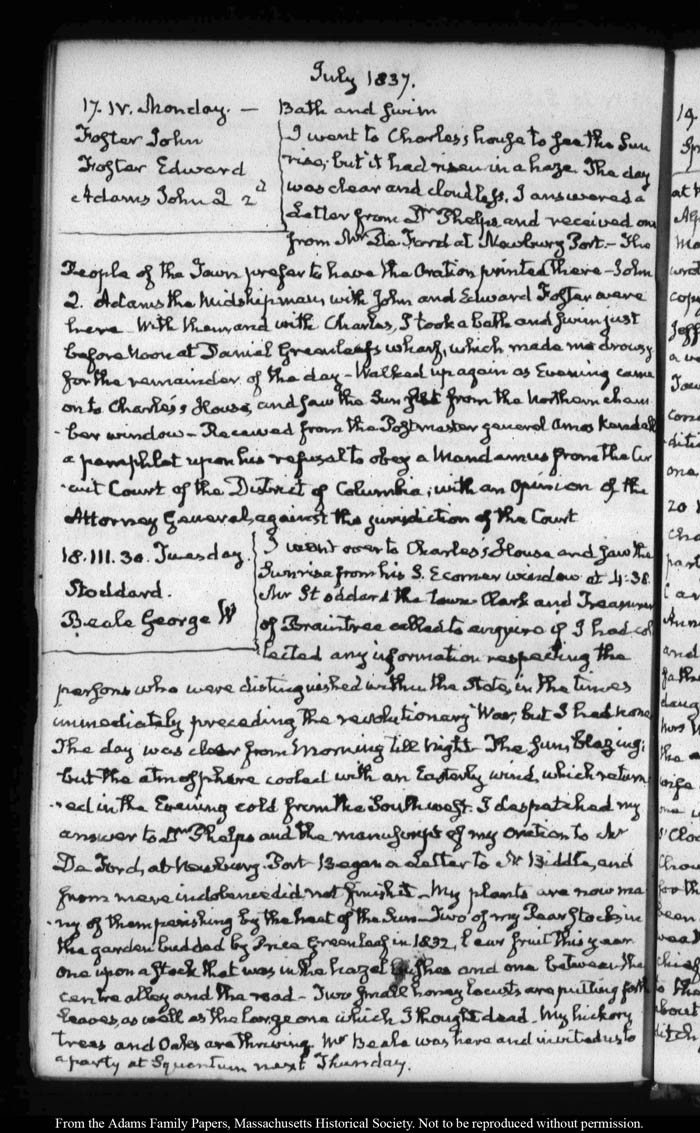 July 1837.
17. IV. Monday. — Bath and Swim
Foster John
Foster Edward
Adams John Q 2d
I went to Charles's house to see the Sun
rise; but it had risen in a haze. The day
was clear and cloudless. I answered a
Letter from Dr Phelps, and received one
from Mr De Ford at Newbury Port.— The
People of the Town prefer to have the Oration printed there— John
Q. Adams the Midshipman, with John and Edward Foster were
here. With them and with Charles, I took a bath and swim just
before Noon at Daniel Greenleaf's wharf, which made me drowsy
for the remainder of the day— Walked up again as Evening came
on to Charles's House, and saw the Sun set from the Northern cham
-ber window— Received from the Postmaster general Amos Kendall
a pamphlet upon his refusal to obey a Mandamus from the Cir
-cuit Court of the District of Columbia; with an Opinion of the
Attorney General, against the jurisdiction of the Court
18. III. 30. Tuesday.
Stoddard.
Beale George W
I went over to Charles's House and saw the
Sunrise from his S.E corner window at 4:38.
Mr Stoddard the town Clerk and Treasurer
of Braintree called to enquire if I had col
lected any information respecting the
persons who were distinguished within the State, in the times
immediately preceding the revolutionary War; but I had none
The day was clear from Morning till Night— The Sun, blazing;
but the atmosphere cooled with an Easterly wind, which return
-ed in the Evening cold from the Southwest. I despatched my
answer to Dr Phelps and the manuscript of my Oration to Mr
De Ford, at Newbury-Port— Began a Letter to Mr Biddle, and
from mere indolence did not finish it— My plants are now ma
-ny of them perishing by the heat of the Sun— Two of my Pear stocks in
the garden budded by Price Greenleaf in 1832, bear fruit this year
one upon a stock that was in the hazel bushes and one between the
centre alley and the road— Two small honey locusts are putting forth
leaves, as well as the large one which I thought dead— My hickory
trees and Oaks are thriving. Mr Beale was here and invited us to
a party at Squantum next Thursday.
19.
From the Adams Family Papers, Massachusetts Historical Society. Not to be reproduced without permission.